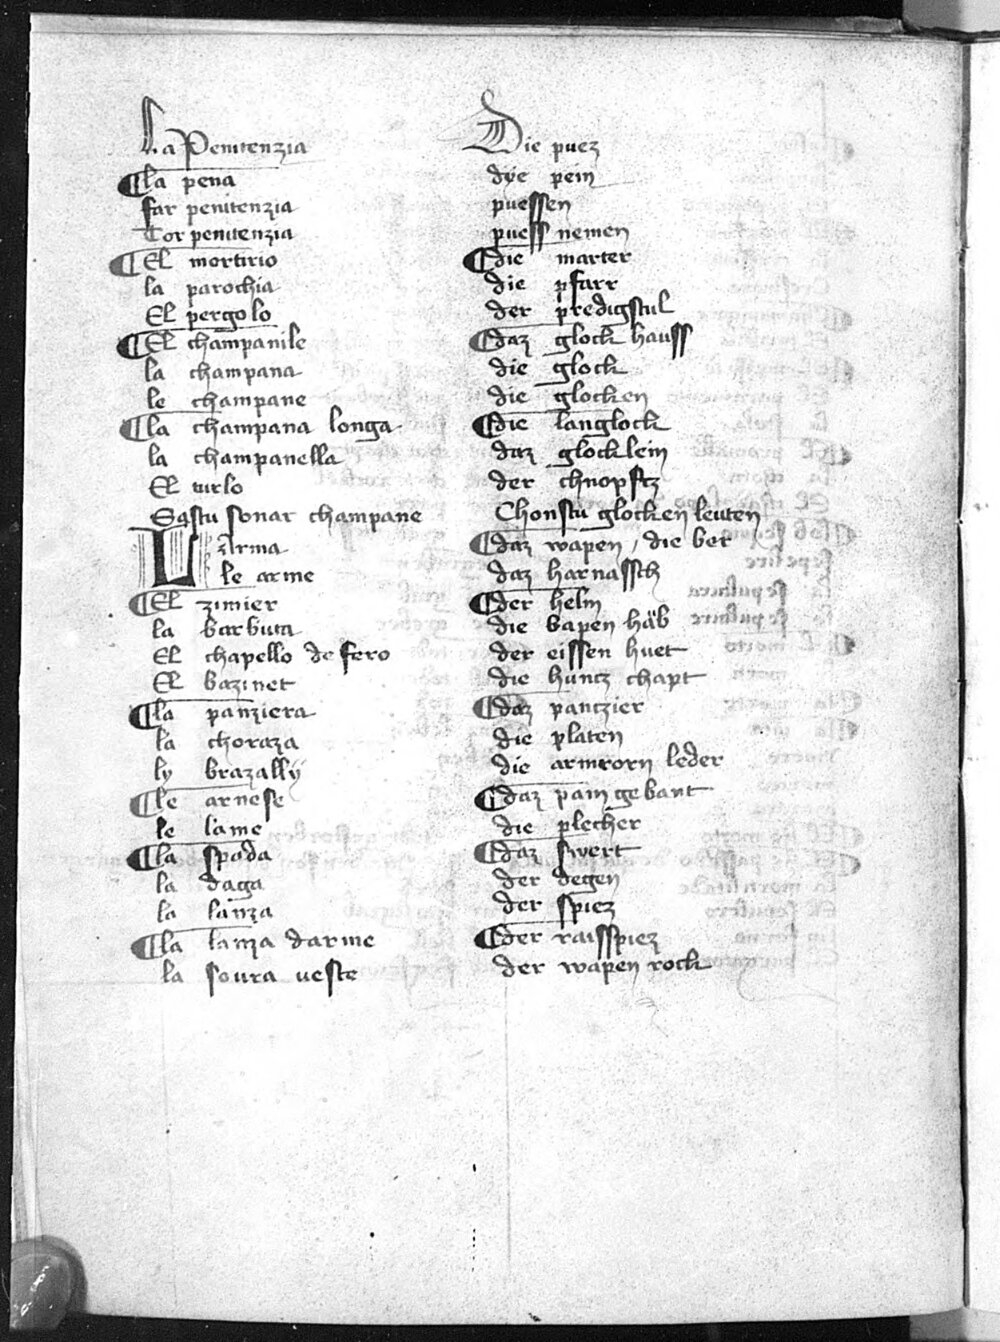 La Penitenzia Die puez
la pena dÿe pein
far penitenzia puessen
Tor penitenzia puess nemen
El mortirio die marter
la parochia die pfarr
El pergolo der predigstul
El champanile daz glock hauss
la champana die glock
le champane die glocken
La champana longa die langlock
la champanella daz glocklein
El der chnopftz
Sastu sonar champane Chonstu glocken leuten
arma daz wapen / die wer
le arme daz harnassch
El zimier der helm
la barbuta die bapen häb
El chapello de fero der eissen huet
El bazinet die huncz chapt
la panziera daz pantzier
la choraza die platen
ly brazallÿ die armrorn leder
le arnese daz pain gebant
le lame die plecher
la spada daz swert
la daga der degen
la lanza der spiez
la lanza darme der raisspiez
la soura ueste der wapen rock